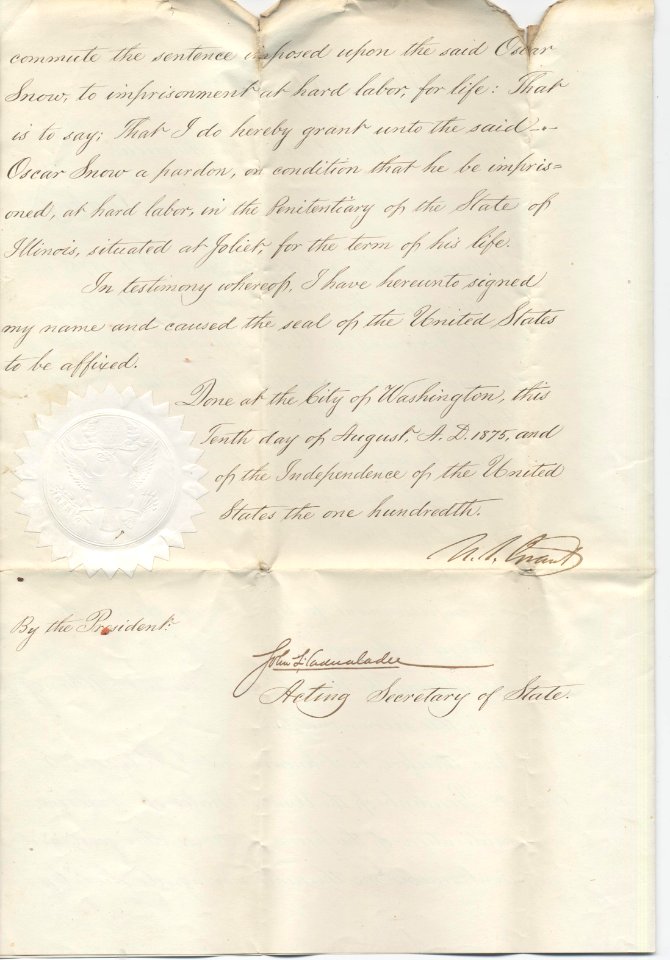 commute the sentence imposed upon the said Oscar
Snow, to imprisonment at hard labor, for life: That
is to say; That I do hereby grant unto the said
Oscar Snow a pardon, on condition that he be impris=
oned, at hard labor, in the Penitentiary of the State of
Illinois, situated at Joliet, for the term of his life.
In testimony whereof, I have hereunto signed
my name and caused the seal of the United States
to be affixed.
Done at the City of Washington, this
Tenth day of August, A.D. 1875, and
of the Independence of the United
States the one hundredth.
U. S. Grant
By the President:
John L. Cadwalader
Acting Secretary of State.